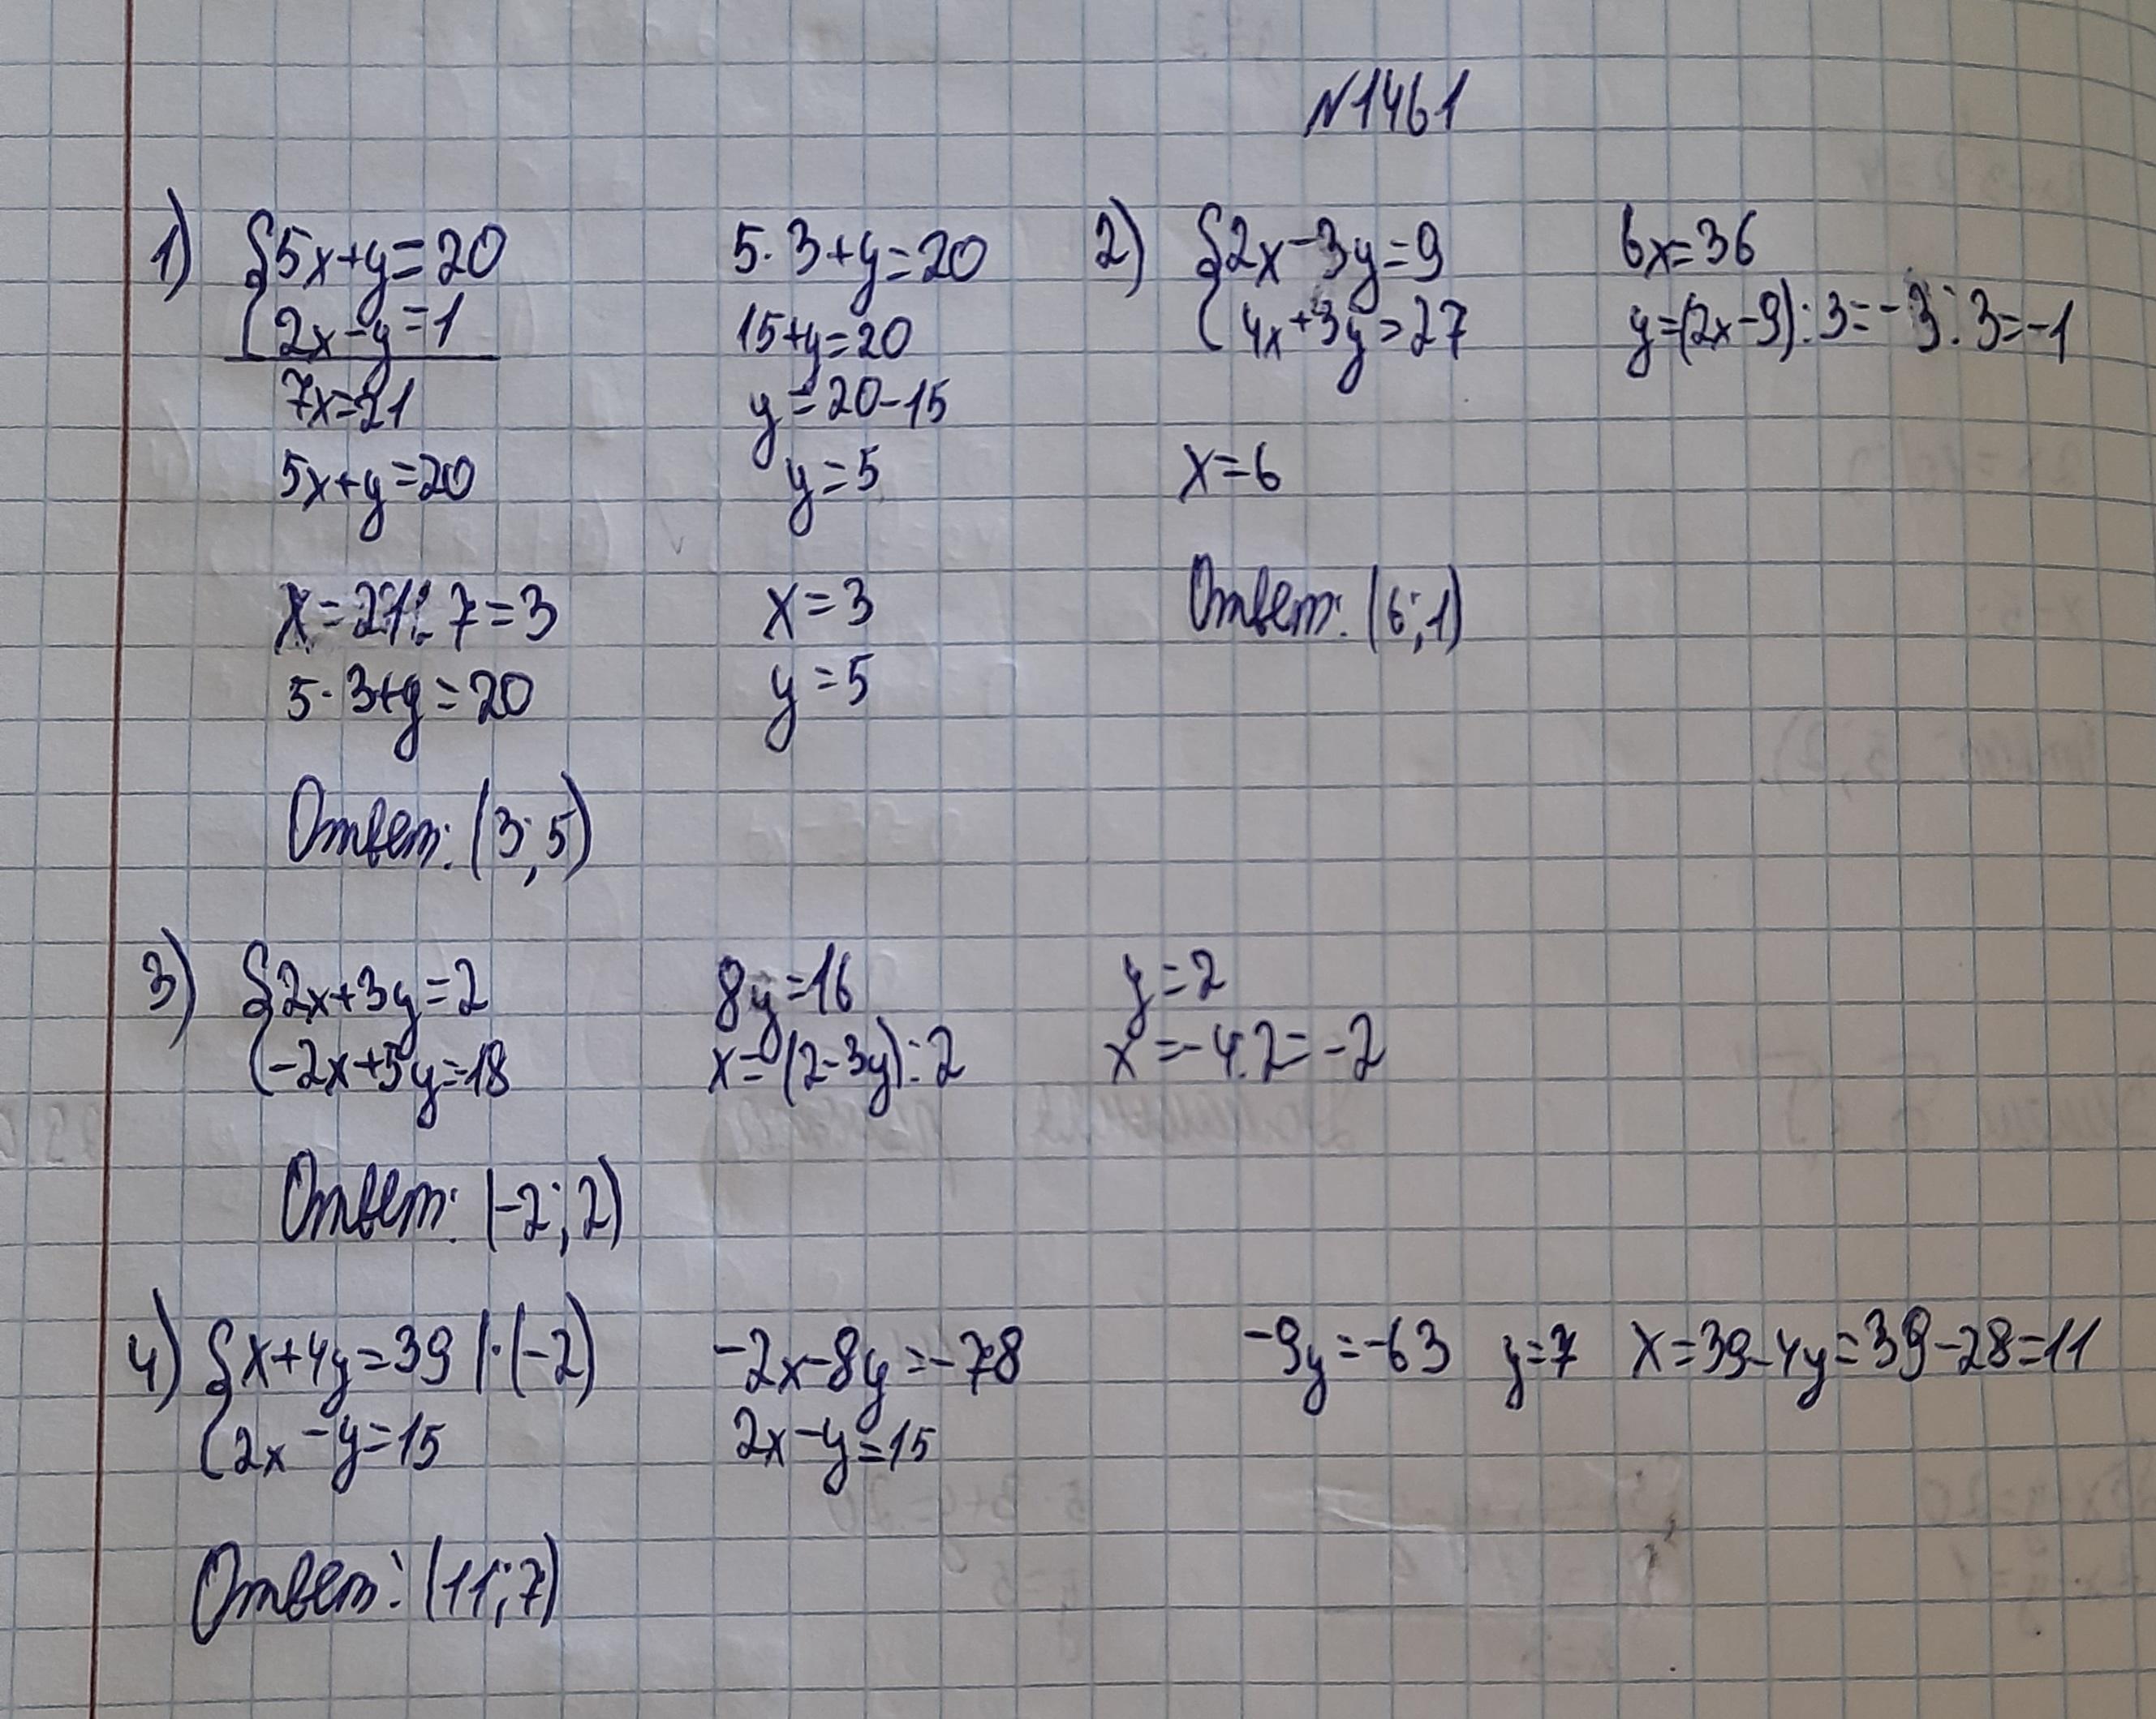 N1461
1) {5x+y=20
2x-y=1
7x=21
5x+y=20
x=21:7=3
5·3+y=20
5·3+y=20
15+y=20
y=20-15
y=5
x=3
y=5
Ответ: (3;5)
2) {2x-3y=9
4x+3y=27
6x=36
y=(2x-9):3=-3:3=-1
x=6
Ответ: (6;1)
3) {2x+3y=2
-2x+5y=18
8y=16
x=(2-3y):2
y=2
x=-4:2=-2
Ответ: (-2;2)
4) {x+4y=39 |·(-2)
2x-y=15
-2x-8y=-78
2x-y=15
-9y=-63 y=7 x=39-4y=39-28=11
Ответ: (11;7)